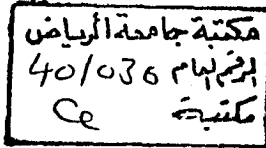 مكتبة جامعة الرياض
الرقم العام 40/036
مكتبة